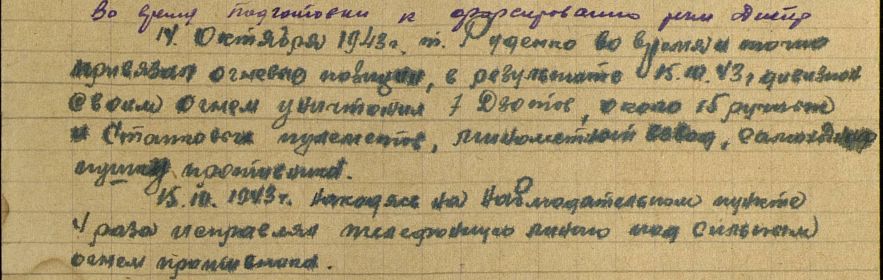 Во время подготовки к форсированию реки Днепр
14. Октября 1943 г. т. Руденко во время и точно
привязал огневые позиции, в результате 15.10.43 г. дивизион
своим огнем уничтожил 7 Дзотов, около 15 ручных
и Станковых пулеметов, минометный взвод, самоходную
пушку противника.
15.10.1943 г. находясь на наблюдательном пункте
4 раза исправлял телефонную линию под сильным
огнем противника.